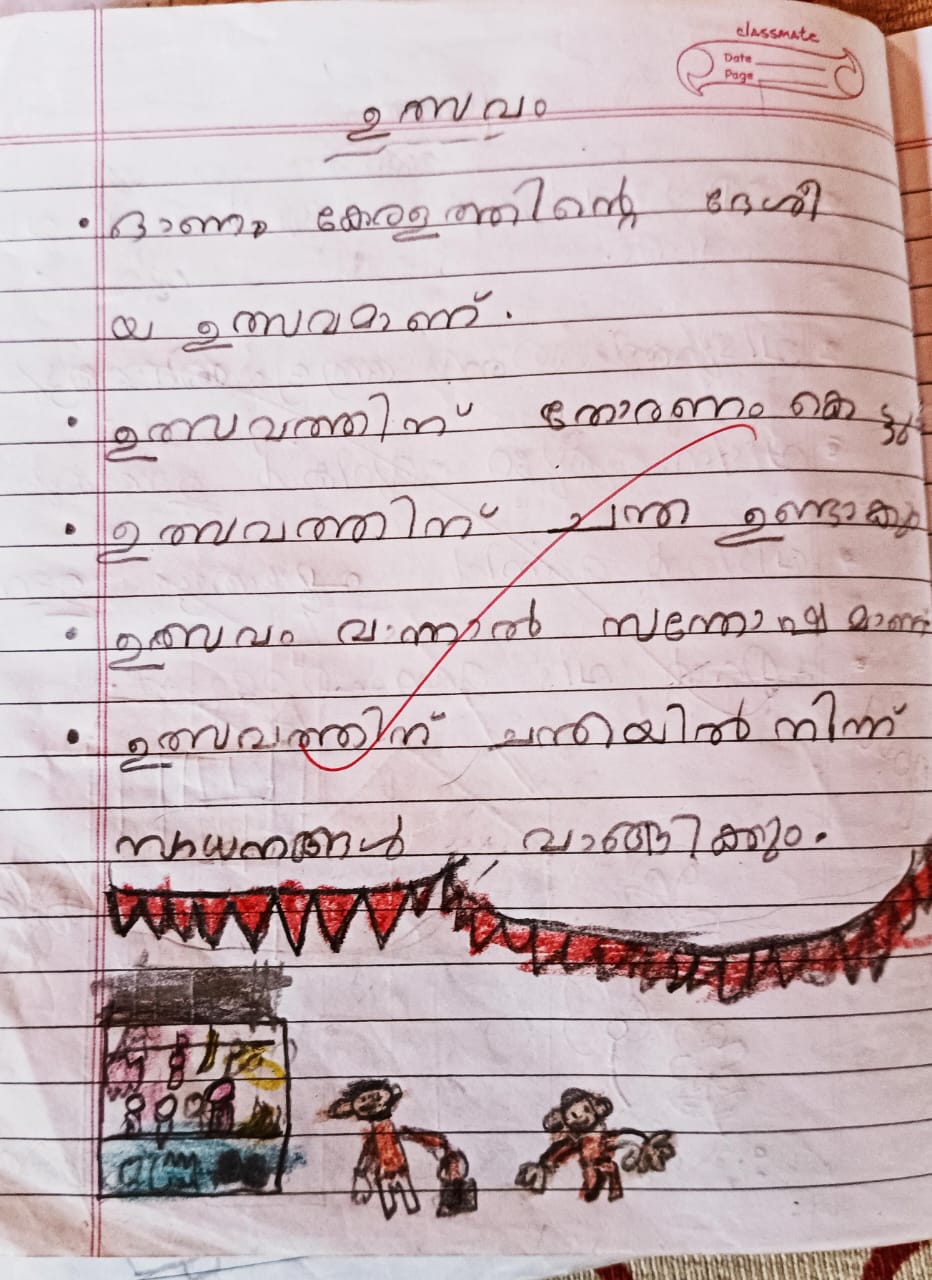 classmate
Date
Page
ഉത്സവം
• ഓണം കേരളത്തിന്റെ ദേശീ
യ ഉത്സവമാണ്.
• ഉത്സവത്തിന് തോരണം കെട്ടും
• ഉത്സവത്തിന് ചന്ത ഉണ്ടാകും
• ഉത്സവം വന്നാൽ സന്തോഷമാണ്
• ഉത്സവത്തിന് ചന്തയിൽ നിന്ന്
സാധനങ്ങൾ വാങ്ങിക്കും.